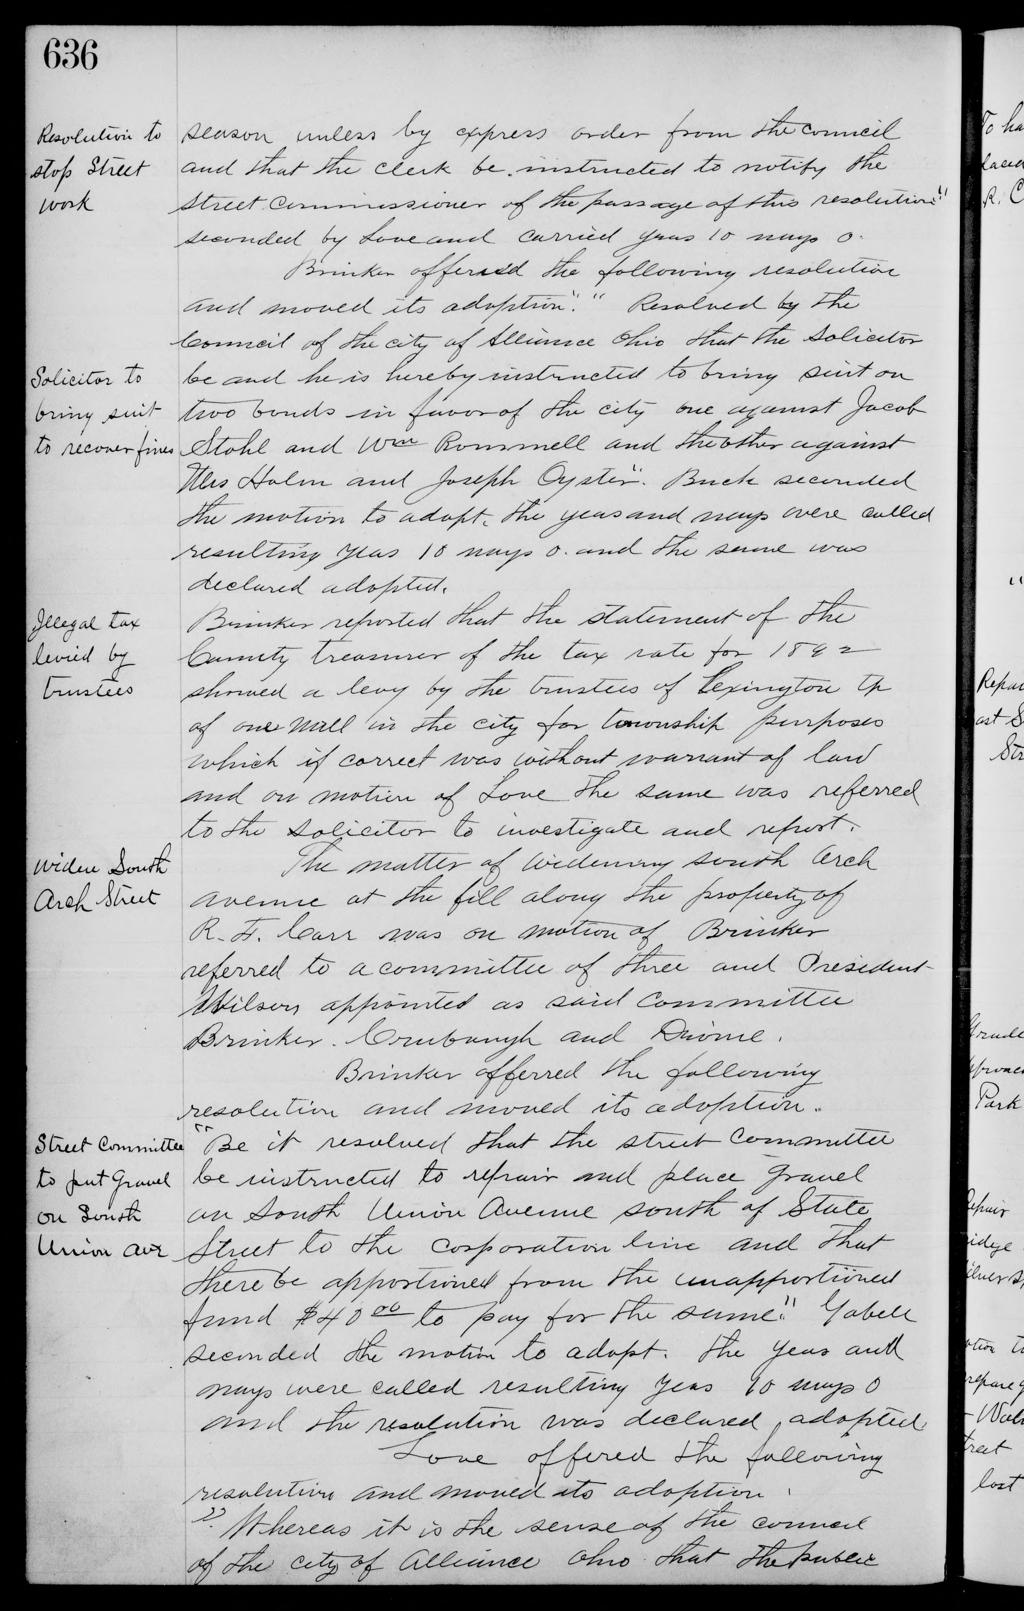 636
Resolution to
stop Street
work
season unless by express order from the council
and that the clerk be instructed to notify the
street commissioner of the passage of this resolution"
seconded by Love and carried yeas 10 nays 0.
Brinker offered the following resolution
and moved its adoption." " Resolved by the
Council of the city of Alliance Ohio that the solicitor
Solicitor to
bring suit
to recover fines
be and he is hereby instructed to bring suit on
two bonds in favor of the city one against Jacob
Stahl and Wm Rommell and the other against
Holm and Joseph Oyster". Buck seconded
the motion to adopt. The yeas and nays were called
resulting yeas 10 nays 0. and the same was
declared adopted.
Illegal tax
levied by
trustees
Brinker reported that the statement of the
County treasurer of the tax rate for 1892
showed a levy by the trustees of Lexington tp
of one mill in the city for township purposes
which if correct was without warrant of law
and on motion of Love the same was referred
to the solicitor to investigate and report.
Widen South
Arch Street
The matter of widening south Arch
avenue at the fill along the property of
R. F. Carr was on motion of Brinker
referred to a committee of three and President
Wilson appointed as said committee
Brinker. Crubaugh and
Brinker offerred the following
resolution and moved its adoption.
Street Committee
to put Gravel
on South
Union ave
"Be it resolved that the street committee
be instructed to repair and place gravel
on South Union Avenue south of State
Street to the corporation line and that
there be apportioned from the unapportioned
fund $40 00 to pay for the same". Yabell
seconded the motion to adopt. The yeas and
nays were called resulting yeas 10 nays 0
and the resolution was declared adopted
Love offered the following
resolution and moved its adoption.
" Whereas it is the sense of the council
of the city of Alliance Ohio that the public
To ha
R. C
"
Repai
ast S
Str
Park
epair
idge
repare
treat
lost